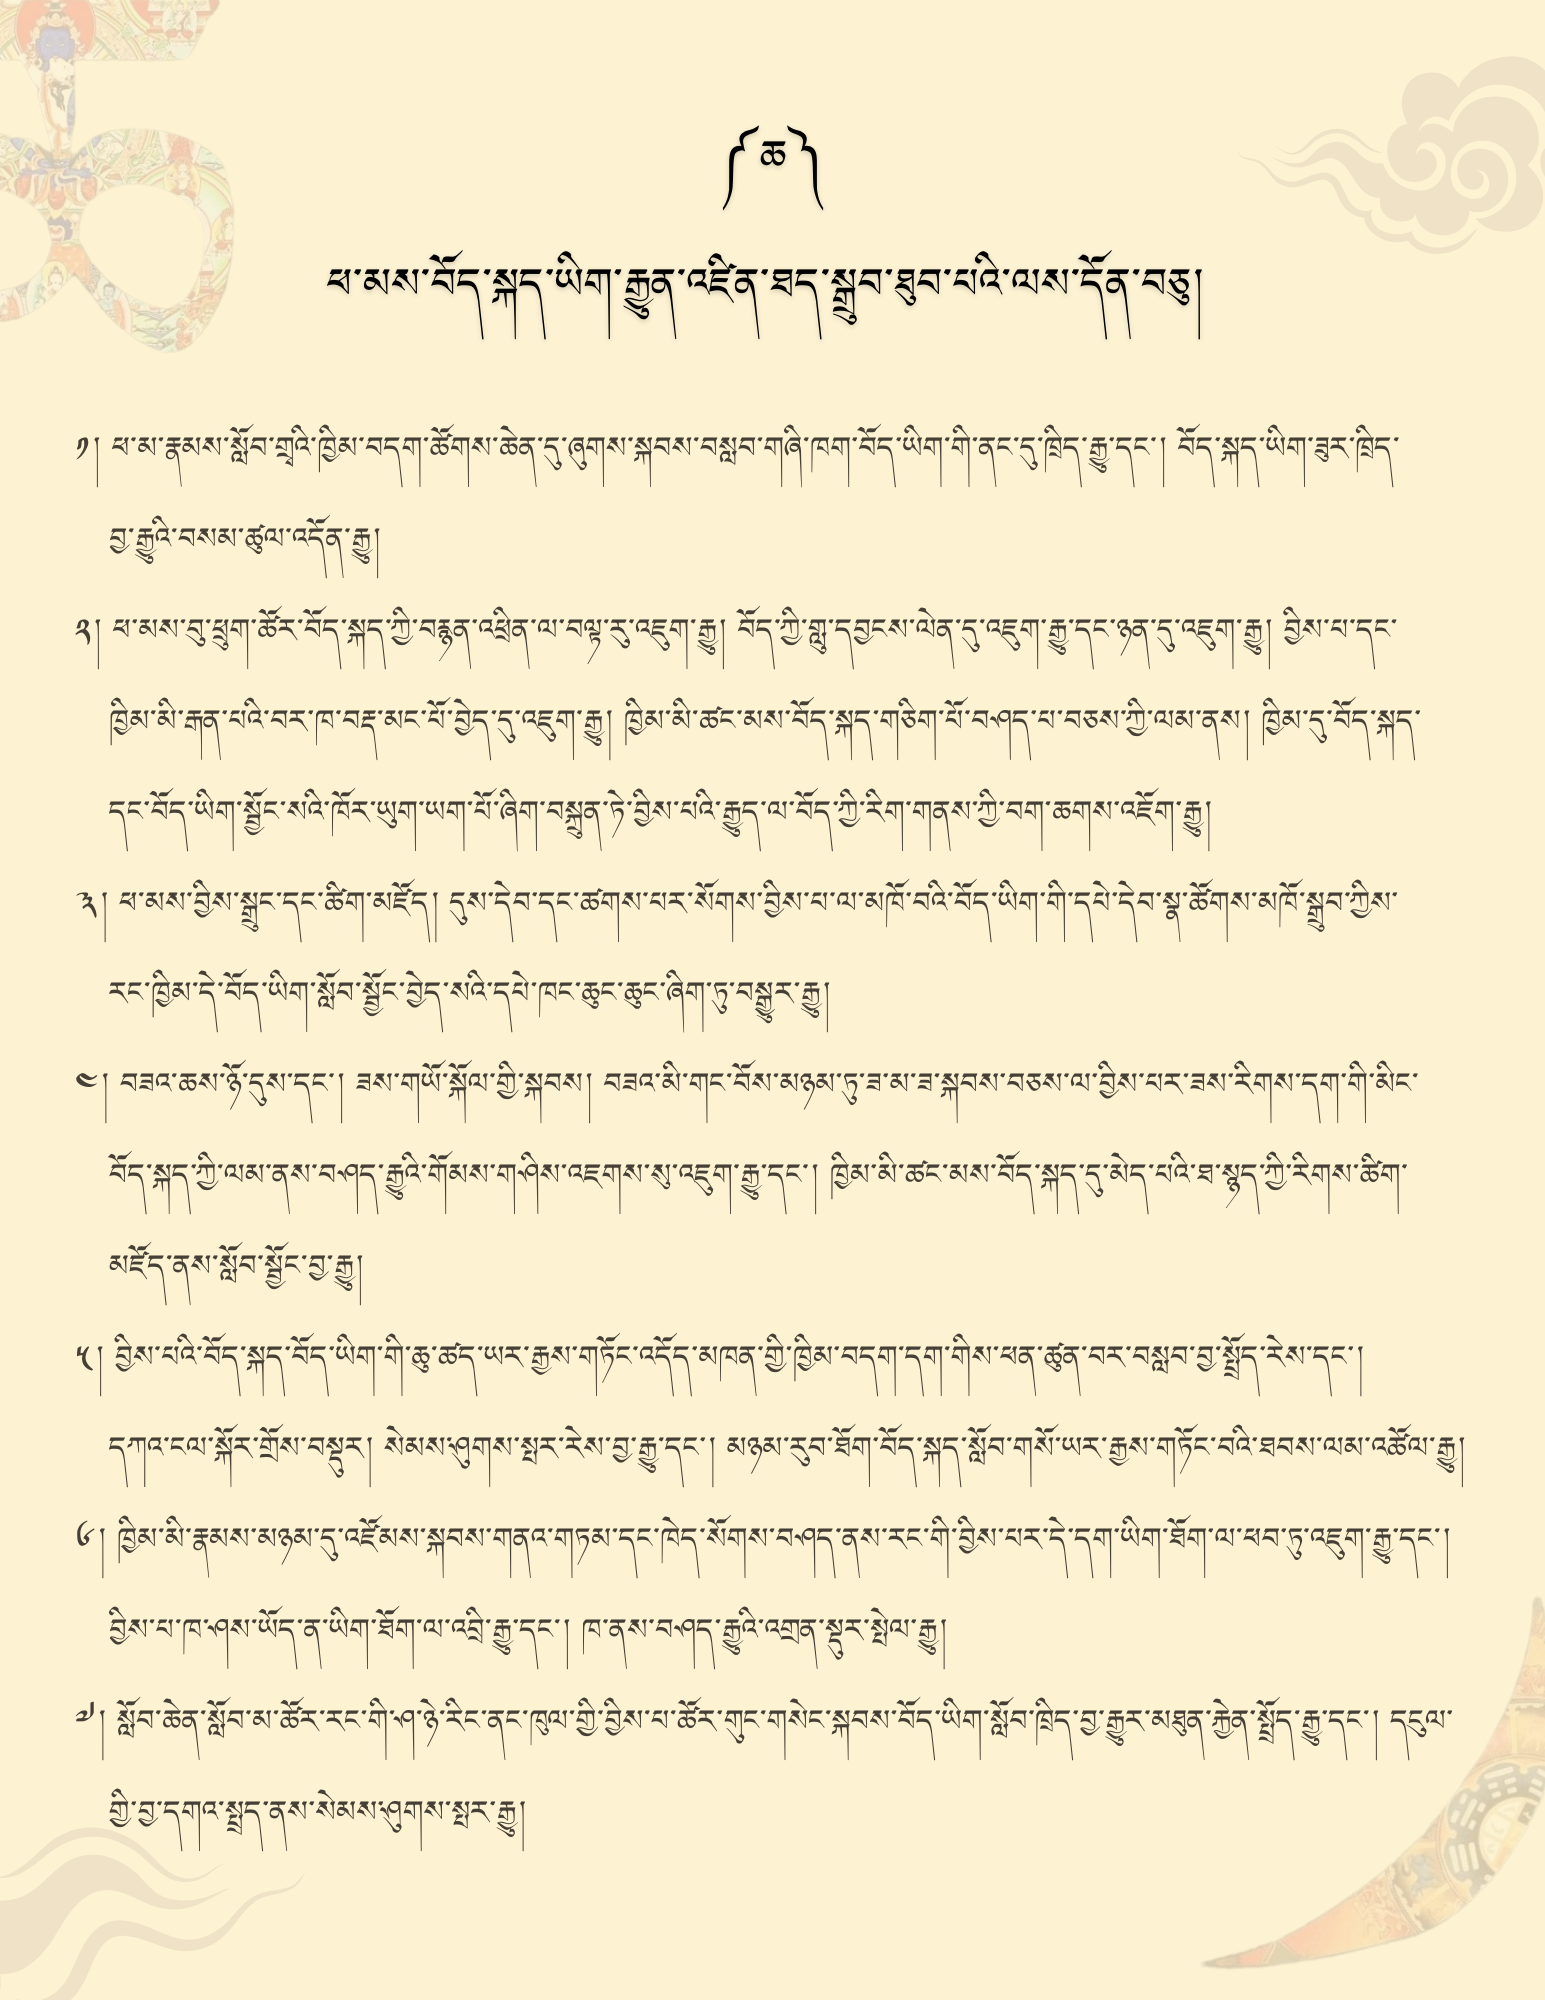 ༼ ཆ ༽
ཕ་མས་བོད་སྐད་ཡིག་རྒྱུན་འཛིན་ཐད་སྒྲུབ་ཐུབ་པའི་ལས་དོན་བཅུ།
༡། ཕ་མ་རྣམས་སློབ་གྲྭའི་ཁྱིམ་བདག་ཚོགས་ཆེན་དུ་ཞུགས་སྐབས་བསླབ་གཞི་ཁག་བོད་ཡིག་གི་ནང་དུ་ཁྲིད་རྒྱུ་དང་། བོད་སྐད་ཡིག་ཟུར་ཁྲིད་
བྱ་རྒྱུའི་བསམ་ཚུལ་འདོན་རྒྱུ།
༢། ཕ་མས་བུ་ཕྲུག་ཚོར་བོད་སྐད་ཀྱི་བརྙན་འཕྲིན་ལ་བལྟ་རུ་འཇུག་རྒྱུ། བོད་ཀྱི་གླུ་དབྱངས་ལེན་དུ་འཇུག་རྒྱུ་དང་ཉན་དུ་འཇུག་རྒྱུ། བྱིས་པ་དང་
ཁྱིམ་མི་རྒན་པའི་བར་ཁ་བརྡ་མང་པོ་བྱེད་དུ་འཇུག་རྒྱུ། ཁྱིམ་མི་ཚང་མས་བོད་སྐད་གཅིག་པོ་བཤད་པ་བཅས་ཀྱི་ལམ་ནས། ཁྱིམ་དུ་བོད་སྐད་
དང་བོད་ཡིག་སྦྱོང་སའི་ཁོར་ཡུག་ཡག་པོ་ཞིག་བསྐྲུན་ཏེ་བྱིས་པའི་རྒྱུད་ལ་བོད་ཀྱི་རིག་གནས་ཀྱི་བག་ཆགས་འཇོག་རྒྱུ།
༣། ཕ་མས་བྱིས་སྒྲུང་དང་ཚིག་མཛོད། དུས་དེབ་དང་ཚགས་པར་སོགས་བྱིས་པ་ལ་མཁོ་བའི་བོད་ཡིག་གི་དཔེ་དེབ་སྣ་ཚོགས་མཁོ་སྒྲུབ་ཀྱིས་
རང་ཁྱིམ་དེ་བོད་ཡིག་སློབ་སྦྱོང་བྱེད་སའི་དཔེ་ཁང་ཆུང་ཆུང་ཞིག་ཏུ་བསྒྱུར་རྒྱུ།
༤། བཟའ་ཆས་ཉོ་དུས་དང་། ཟས་གཡོ་སྐོལ་གྱི་སྐབས། བཟའ་མི་གང་བོས་མཉམ་ཏུ་ཟ་མ་ཟ་སྐབས་བཅས་ལ་བྱིས་པར་ཟས་རིགས་དག་གི་མིང་
བོད་སྐད་ཀྱི་ལམ་ནས་བཤད་རྒྱུའི་གོམས་གཤིས་འཇགས་སུ་འཇུག་རྒྱུ་དང་། ཁྱིམ་མི་ཚང་མས་བོད་སྐད་དུ་མེད་པའི་ཐ་སྙད་ཀྱི་རིགས་ཚིག་
མཛོད་ནས་སློབ་སྦྱོང་བྱ་རྒྱུ།
༥། བྱིས་པའི་བོད་སྐད་བོད་ཡིག་གི་ཆུ་ཚད་ཡར་རྒྱས་གཏོང་འདོད་མཁན་གྱི་ཁྱིམ་བདག་དག་གིས་ཕན་ཚུན་བར་བསླབ་བྱ་སྤྲོད་རེས་དང་།
དཀའ་ངལ་སྐོར་གྲོས་བསྡུར། སེམས་ཤུགས་སྤར་རེས་བྱ་རྒྱུ་དང་། མཉམ་རུབ་ཐོག་བོད་སྐད་སློབ་གསོ་ཡར་རྒྱས་གཏོང་བའི་ཐབས་ལམ་འཚོལ་རྒྱུ།
༦། ཁྱིམ་མི་རྣམས་མཉམ་དུ་འཛོམས་སྐབས་གནའ་གཏམ་དང་ཁེད་སོགས་བཤད་ནས་རང་གི་བྱིས་པར་དེ་དག་ཡིག་ཐོག་ལ་ཕབ་ཏུ་འཇུག་རྒྱུ་དང་།
བྱིས་པ་ཁ་ཤས་ཡོད་ན་ཡིག་ཐོག་ལ་འབྲི་རྒྱུ་དང་། ཁ་ནས་བཤད་རྒྱུའི་འགྲན་སྡུར་སྤེལ་རྒྱུ།
༧། སློབ་ཆེན་སློབ་མ་ཚོར་རང་གི་ཤ་ཉེ་རིང་ནང་ཁུལ་གྱི་བྱིས་པ་ཚོར་གུང་གསེང་སྐབས་བོད་ཡིག་སློབ་ཁྲིད་བྱ་རྒྱུར་མཐུན་རྐྱེན་སྤྲོད་རྒྱུ་དང་། དངུལ་
གྱི་བྱ་དགའ་སྤྲད་ནས་སེམས་ཤུགས་སྤར་རྒྱུ།